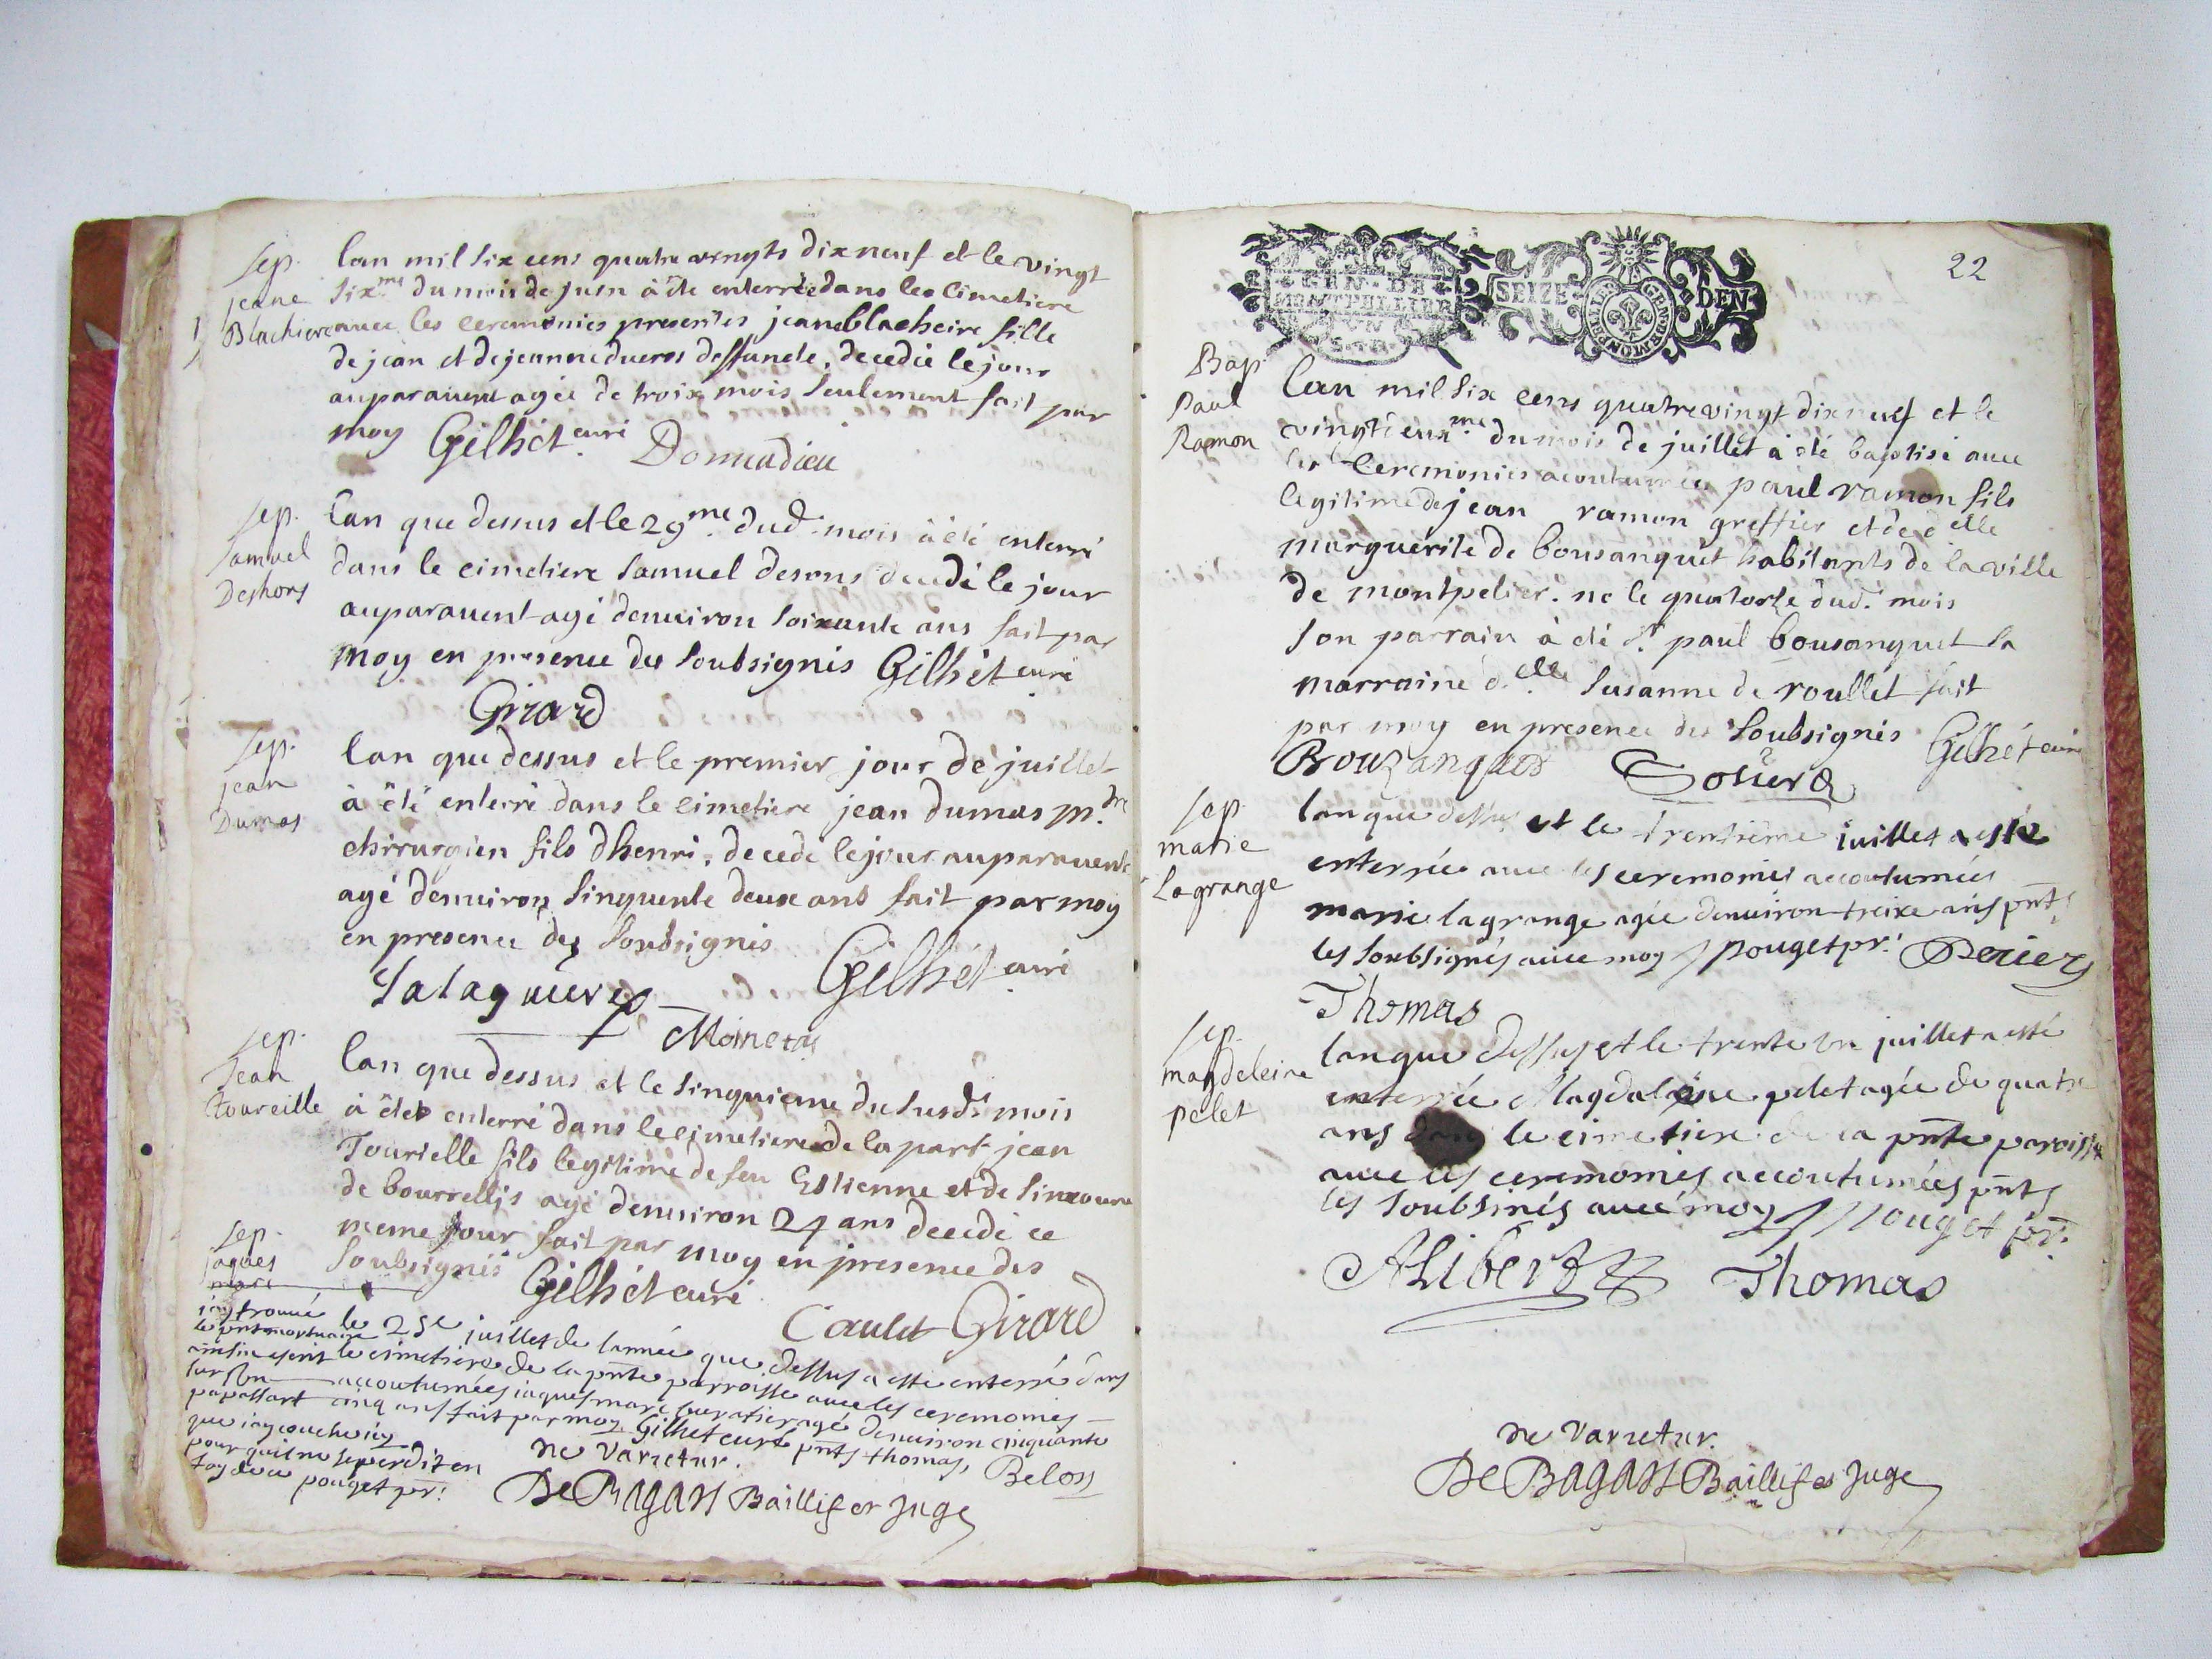 Sep.
jeane
Blachiere
lan mil six cens quatre vingts dix neuf et le vingt
six.me du mois de juin à été enterrée dans les cimetiere
avec les ceremonies presentes jeane blacheire fille
de jean et de jeanne ducros deffuncte, decedée le jour
auparavent agée de troix mois seulement fait par
moy Gilhét curé Donnadieu
Sep.
Samuel
Deshors
lan que dessus et le 29.me dud. mois à été enterré
dans le cimetiere samuel desons decedé le jour
auparavent agé denviron soixante ans fait par
moy en presence des soubsignés Gilhét curé
Girard
Sep.
jean
Dumas
lan que dessus et le premier jour de juillet
à été enterré dans le cimetiere jean dumas m.tre
chirrurgien fils dhenri, decedé le jour auparavent
agé denviron sinquente deux ans fait par moy
en presence des soubsignés
Gilhét curé
Moinetz
Sep.
Jean
toureille
lan que dessus et le sinquieme du susd. mois
à été enterré dans le cimetiere de la part jean
Tourielle fils legitime de feu Estienne et de
de bourrellis agé denviron 24 ans decedé ce
meme jour fait par moy en presence des
soubsignés Gilhét curé
Caulet Girard
Sep.
jaques
marc
le 25e juillet de lannée que dessus a esté enterré dans
le cimetiere de la pnte parroisse avec les ceremonies
accoutumées jaques marc agé denviron cinquante
cinq ans fait par moy Gilhet curé pnts thomas, Belon
jay trouvé
le pnt mortuaire
ainsin escrit
sur un
papassart
que jay couché icy
pour quil ne se perdit en
foy de ce pouget pr.
ne varietur.
De Bagars Baillif et Juge
22
GEN. DE
MONTPELLIER
VN
SEIZE DEN.
GEN. DE MONTPELLIER
Bap.
Paul
Ramon
lan mil six cens quatre vingt dix neuf et le
vingtieux.me du mois de juillet à été baptisé avec
les ceremonies acoutumées paul ramon fils
legitime de jean ramon greffier et de d.elle
marguerite de bousanquet habitants de la ville
de montpelier. ne le quatorze dud. mois
son parrain à été Sr. paul bousanquet sa
marraine d.elle susanne de roullet fait
par moy en presence des soubsignés Gilhét curé
Bouzanquet
Sep
marie
Lagrange
lan que dessus et le trentieme juillet a esté
enterrée avec les ceremonies accoutumées
marie lagrange agée denviron treize ans pnts
les soubsignés avec moy pouget pr. Periez
Thomas
Sep.
magdeleine
pelet
lan que dessus et le trente un juillet a esté
enterrée Magdaleine pelet agée de quatre
ans dans le cimetiere de la pnte paroisse
avec les ceremonies accoutumées pnts
les soubsinés avec moy pouget pr.
Alibert Thomas
ne varietur.
De Bagars Baillif et Juge